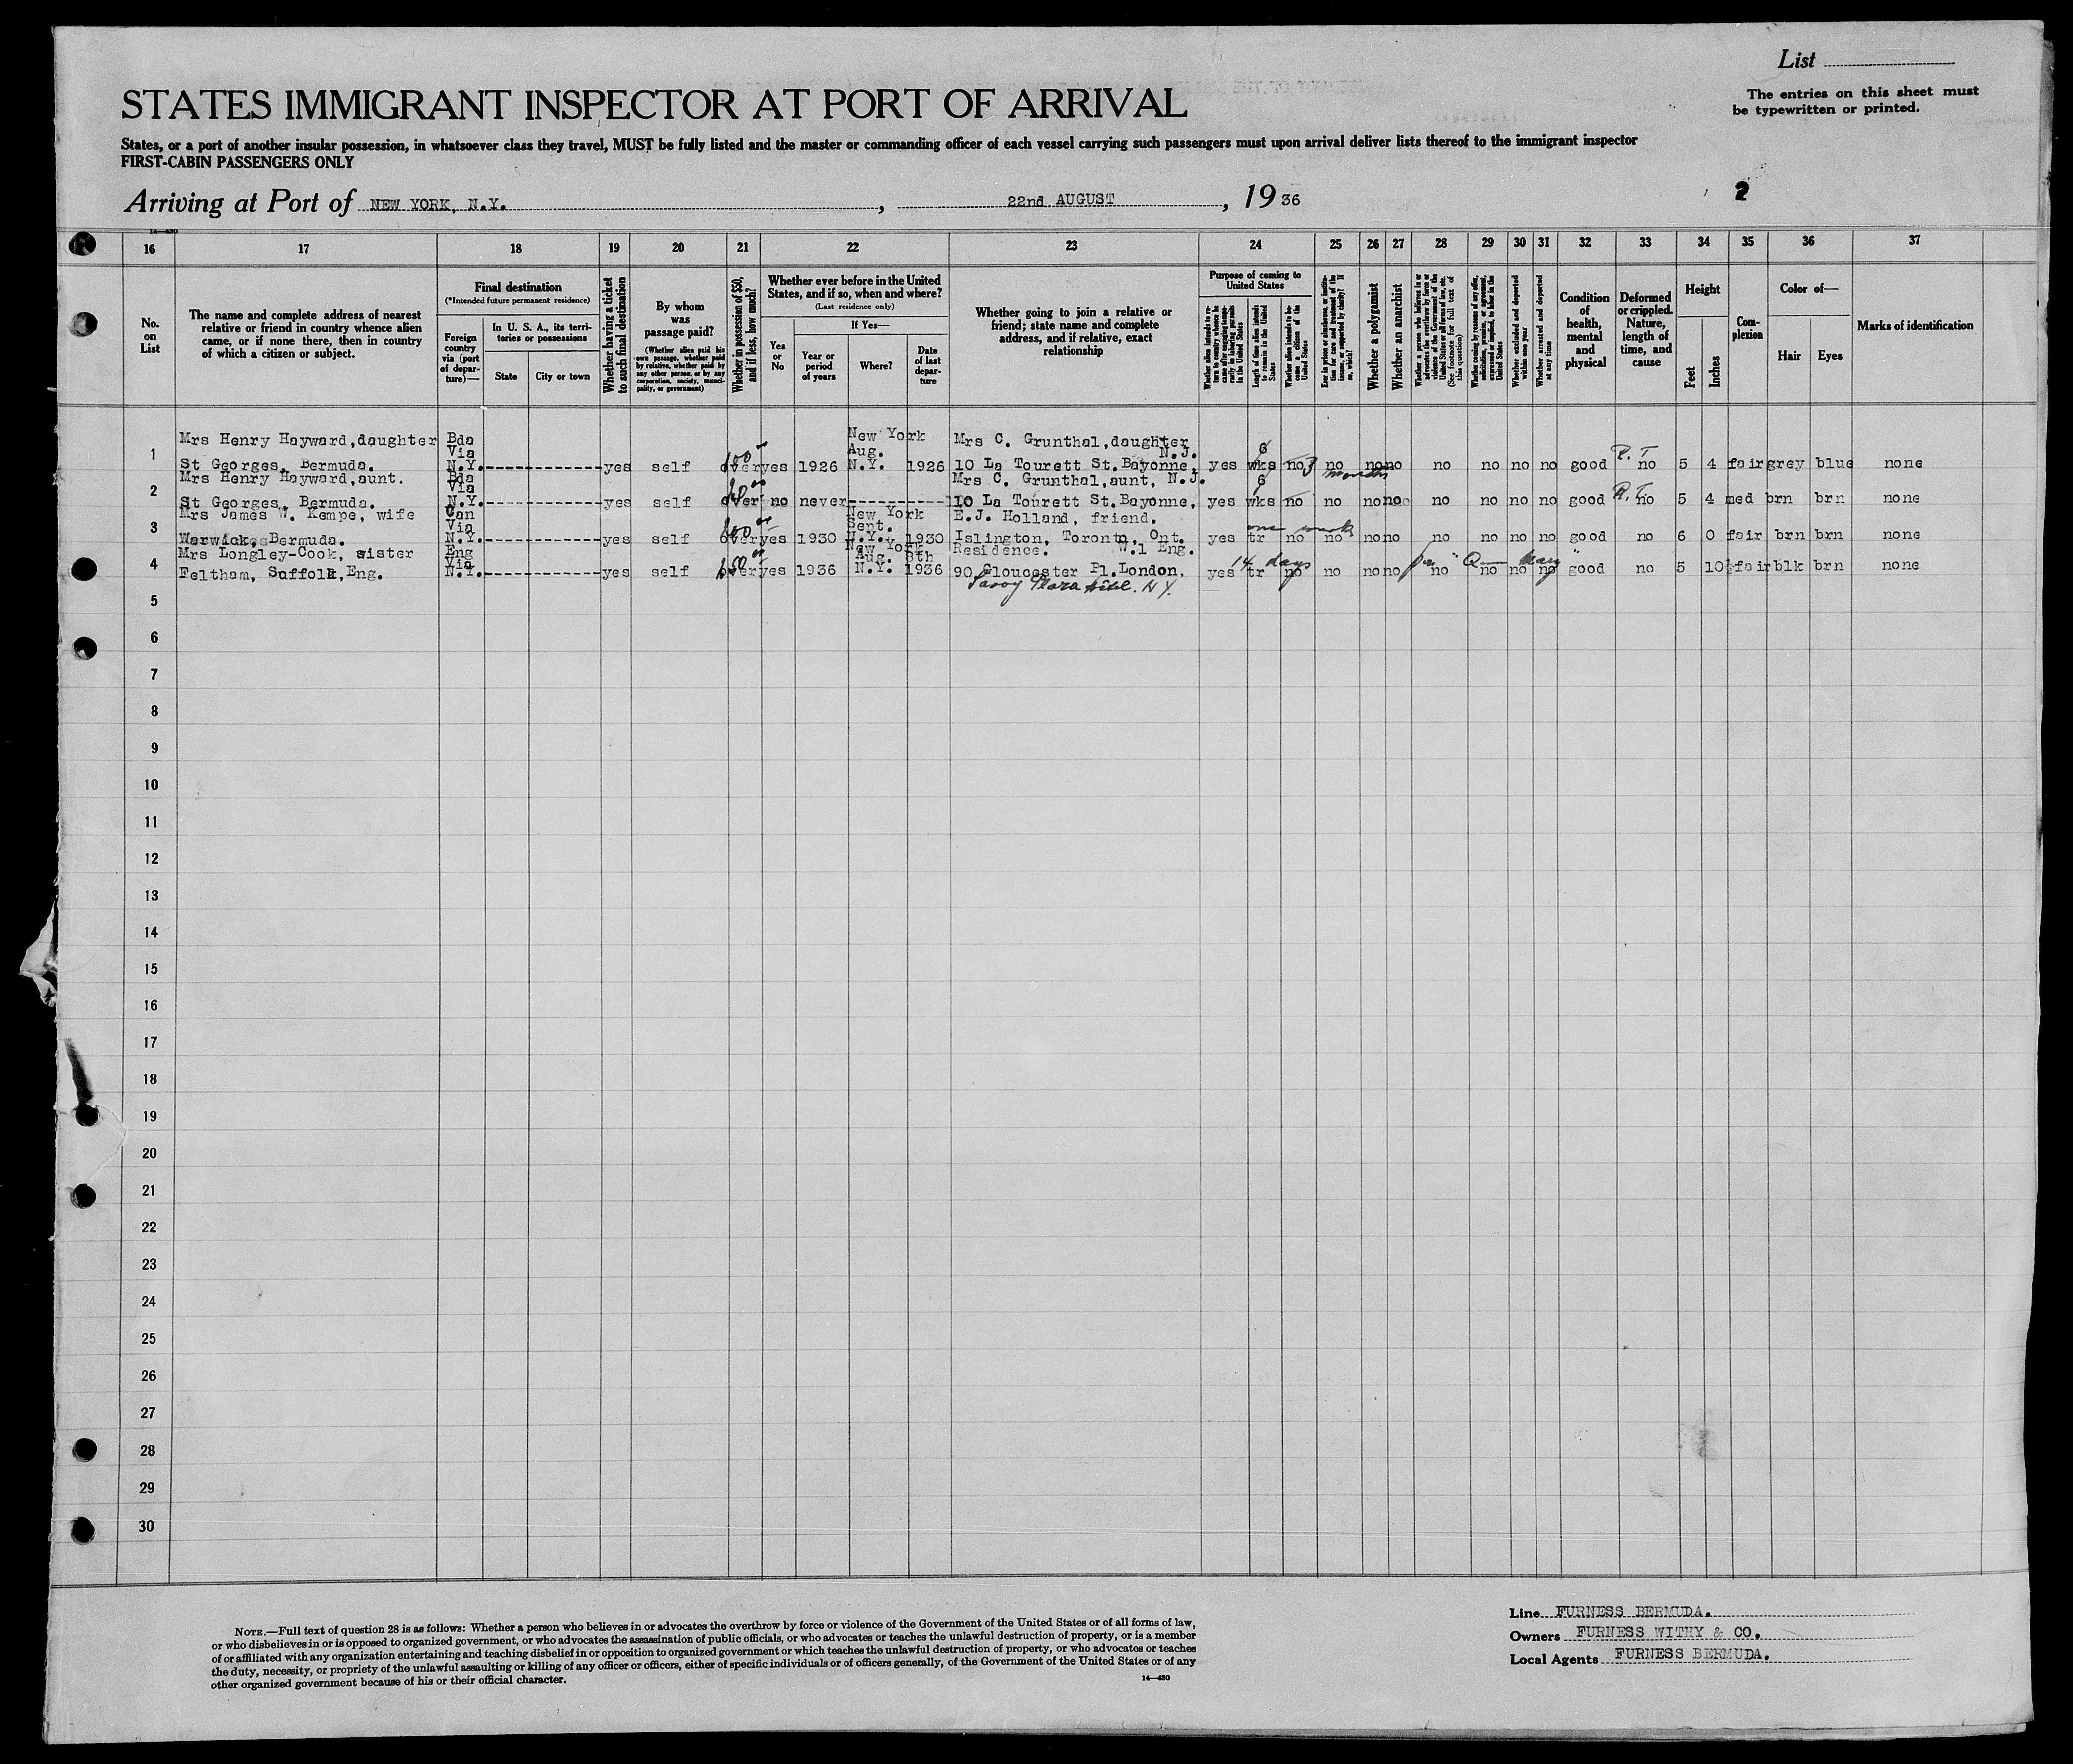 List
The entries on this sheet must
be typewritten or printed.
STATES IMMIGRANT INSPECTOR AT PORT OF ARRIVAL
States, or a port of another insular possession, in whatsoever class they travel, MUST be fully listed and the master or commanding officer of each vessel carrying such passengers must upon arrival deliver lists thereof to the immigrant inspector
FIRST-CABIN PASSENGERS ONLY
Arriving at Port of NEW YORK, N.Y. , 22nd AUGUST , 19 36
2
14—430
16 17 18 19 20 21 22 23 24 25 26 27 28 29 30 31 32 33 34 35 36 37
No.
on
List
The name and complete address of nearest
relative or friend in country whence alien
came, or if none there, then in country
of which a citizen or subject.
Final destination
(*Intended future permanent residence)
Foreign
country
via (port
of depar-
ture)—
In U. S. A., its terri-
tories or possessions
State
City or town
Whether having a ticket
to such final destination
By whom
was
passage paid?
(Whether alien paid his
own passage, whether paid
by relative, whether paid by
any other person, or by any
corporation, society, munici-
pality, or government)
Whether in possession of $50,
and if less, how much?
Whether ever before in the United
States, and if so, when and where?
(Last residence only)
Yes
or
No
If Yes—
Year or
period
of years
Where?
Date
of last
depar-
ture
Whether going to join a relative or
friend; state name and complete
address, and if relative, exact
relationship
Purpose of coming to
United States
Whether alien intends to re-
turn to country whence he
came after engaging tempo-
rarily in laboring pursuits
in the United States
Length of time alien intends
to remain in the United
States
Whether alien intends to be-
come a citizen of the
United States
Ever in prison or almshouse, or institu-
tion for care and treatment of the
insane, or supported by charity? If
so, which?
Whether a polygamist
Whether an anarchist
Whether a person who believes in or
advocates the overthrow by force or
violence of the Government of the
United States or all forms of law, etc.
(See footnote for full text of
this question)
Whether coming by reason of any offer,
solicitation, promise, or agreement,
expressed or implied, to labor in the
United States
Whether excluded and deported
within one year
Whether arrested and deported
at any time
Condition
of
health,
mental
and
physical
Deformed
or crippled.
Nature,
length of
time, and
cause
Height
Feet
Inches
Com-
plexion
Color of—
Hair
Eyes
Marks of identification
1
Mrs Henry Hayward,daughter Bda New York Mrs C. Grunthal,daughter
Via Aug. N.J. 6 R. T
St Georges, Bermuda. N.Y. yes self over yes 1926 N.Y. 1926 10 La Tourett St.Bayonne, yes wks no 3 months no no no no no no no good no 5 4 fair grey blue none
100
2
Mrs Henry Hayward,aunt. Bda Mrs C. Grunthal,aunt, N.J.
Via 6 R. T.
St Georges, Bermuda. N.Y. yes self over no never 10 La Tourett St.Bayonne, yes wks no no no no no no no no good no 5 4 med brn brn none
3
Mrs James W. Kempe, wife Can New York E.J. Holland, friend.
Via Sept. one week
Warwick, Bermuda. N.Y. yes self over yes 1930 N.Y. 1930 Islington, Toronto, Ont. yes tr no no no no no no no no good no 6 0 fair brn brn none
4
Mrs Longley-Cook, sister Eng New York Residence. W.1 Eng.
Via Aug. 8th 14 days per "Queen Mary"
Feltham, Suffolk,Eng. N.Y. yes self over yes 1936 N.Y. 1936 90,Gloucester Pl.London, yes tr no no no no no no no no good no 5 10½ fair blk brn none
Savoy Plaza Hotel. N.Y.
5
6
7
8
9
10
11
12
13
14
15
16
17
18
19
20
21
22
23
24
25
26
27
28
29
30
NOTE.—Full text of question 28 is as follows: Whether a person who believes in or advocates the overthrow by force or violence of the Government of the United States or of all forms of law,
or who disbelieves in or is opposed to organized government, or who advocates the assassination of public officials, or who advocates or teaches the unlawful destruction of property, or is a member
of or affiliated with any organization entertaining and teaching disbelief in or opposition to organized government or which teaches the unlawful destruction of property, or who advocates or teaches
the duty, necessity, or propriety of the unlawful assaulting or killing of any officer or officers, either of specific individuals or of officers generally, of the Government of the United States or of any
other organized government because of his or their official character.
14—430
Line FURNESS BERMUDA.
Owners FURNESS WITHY & CO.
Local Agents FURNESS BERMUDA.